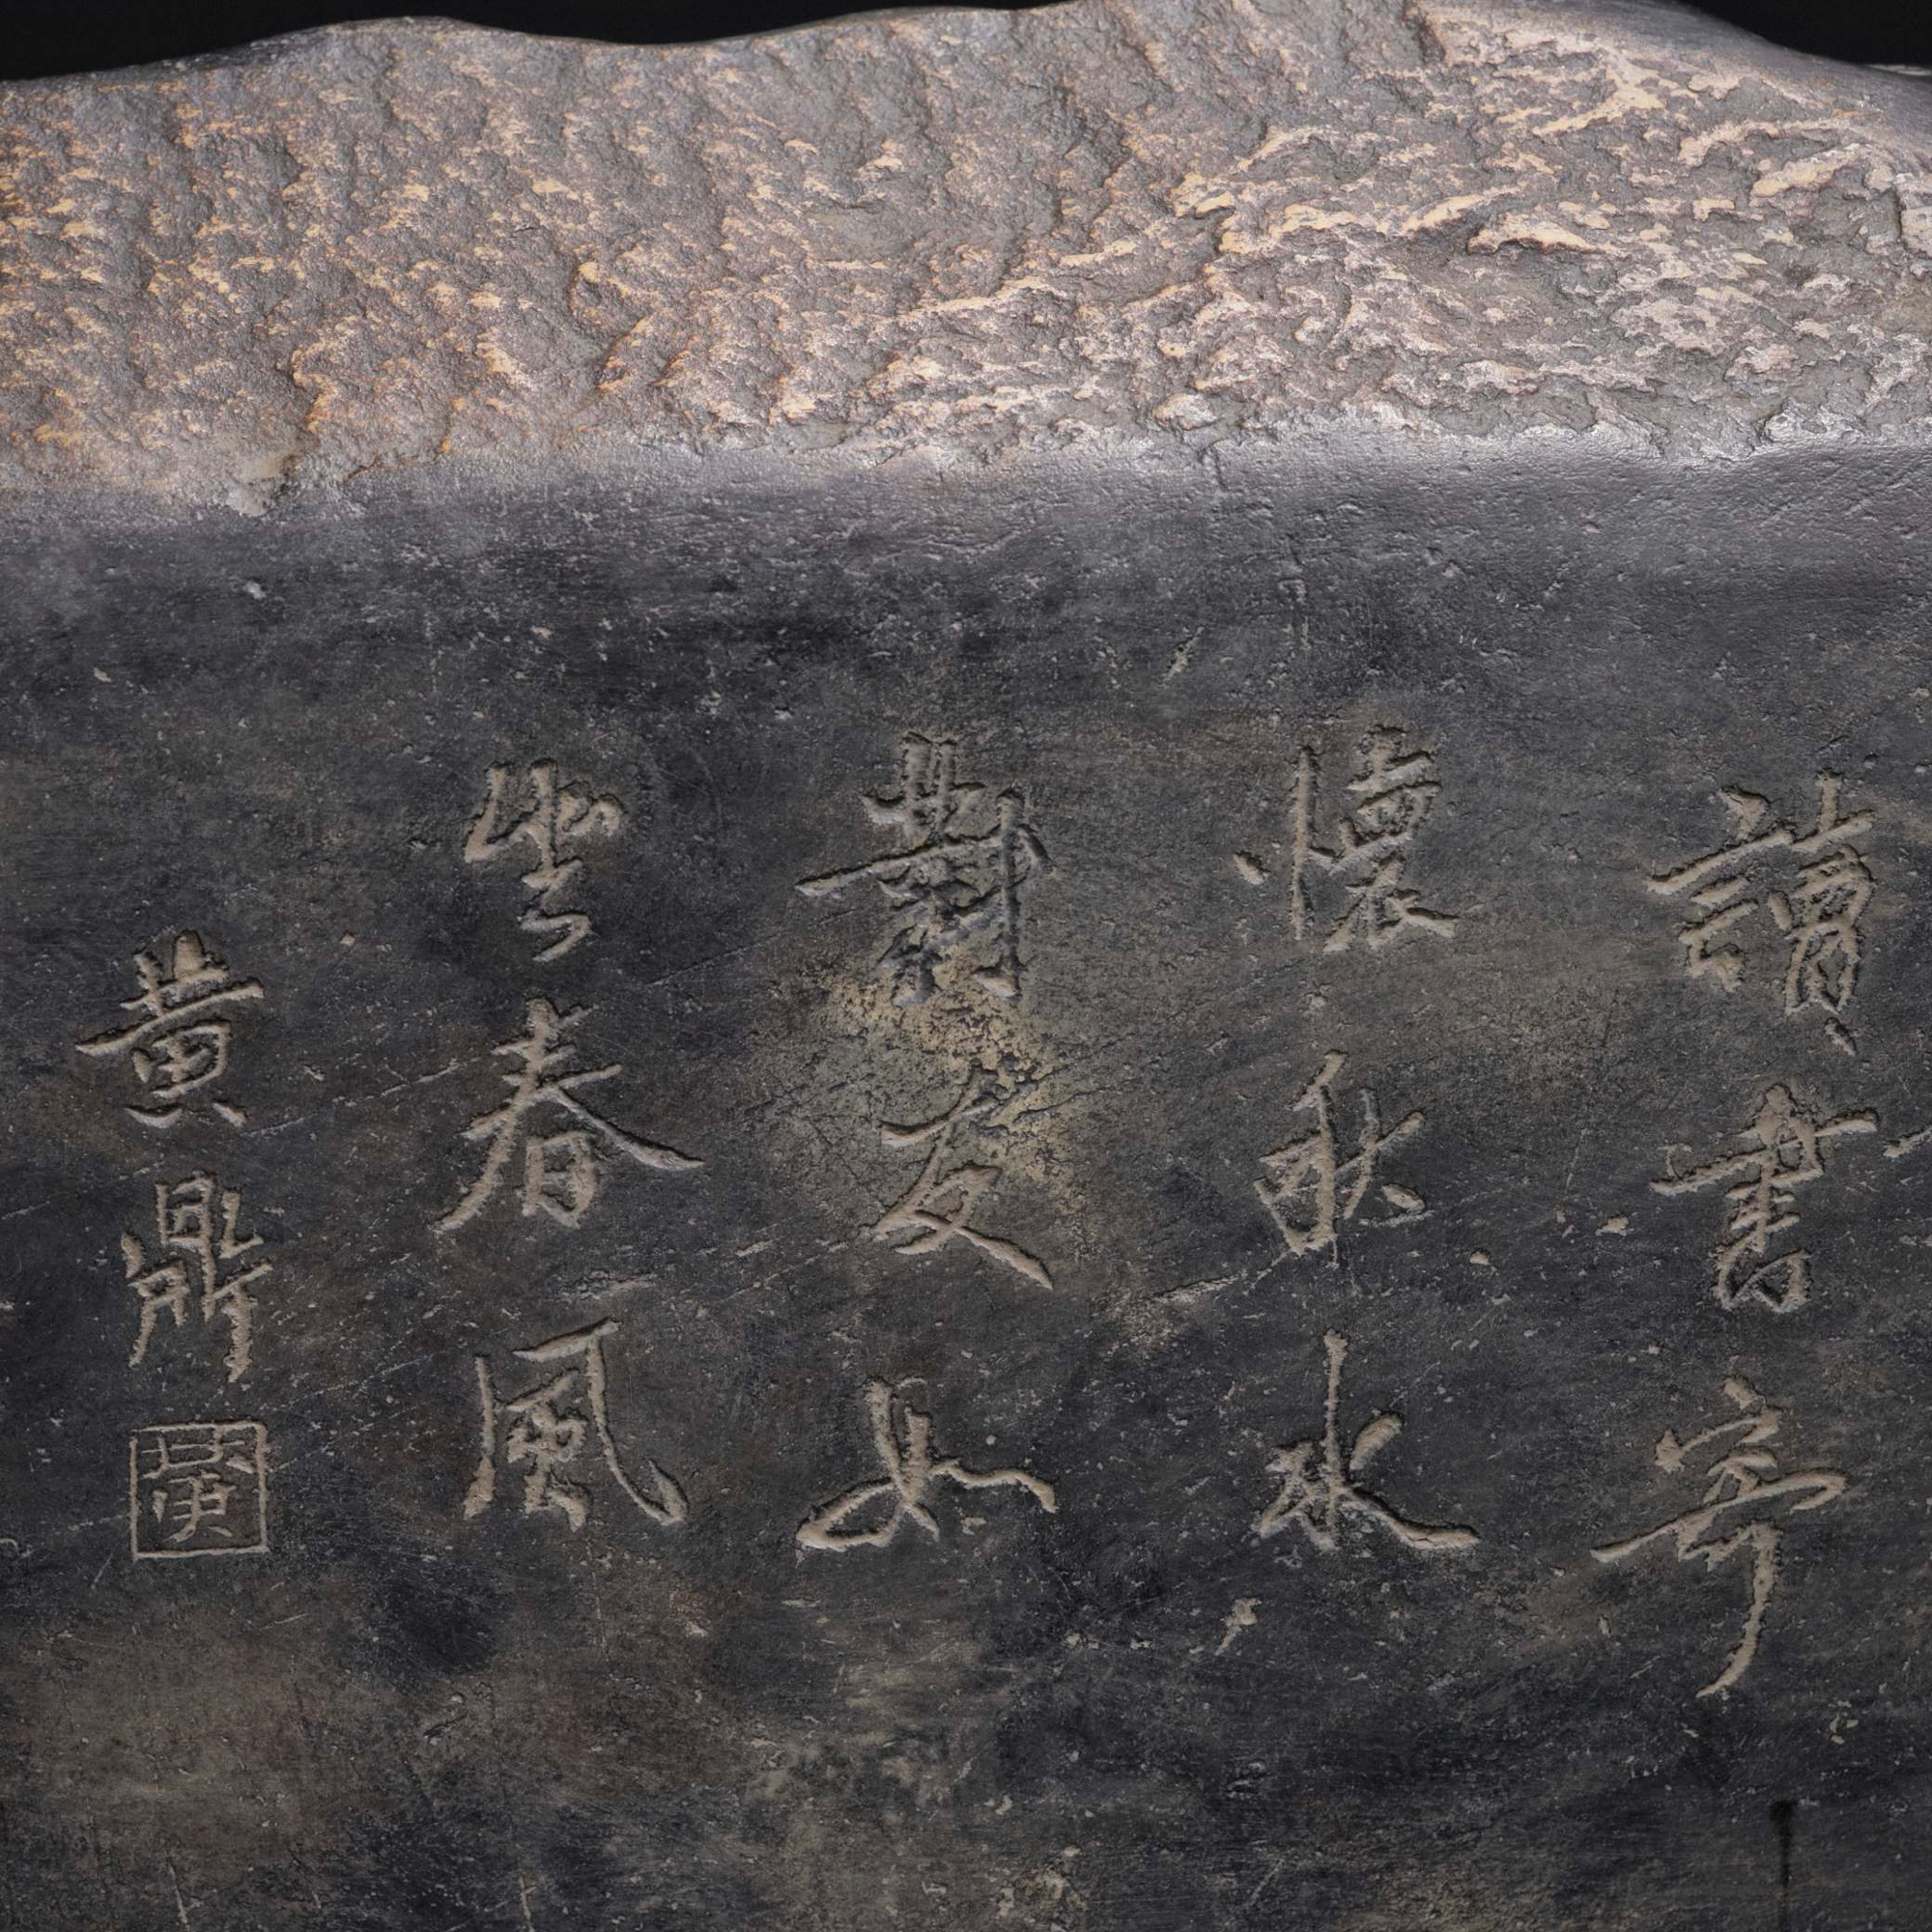 讀書寄
懷秋水
對友如
坐春風
黃鼎